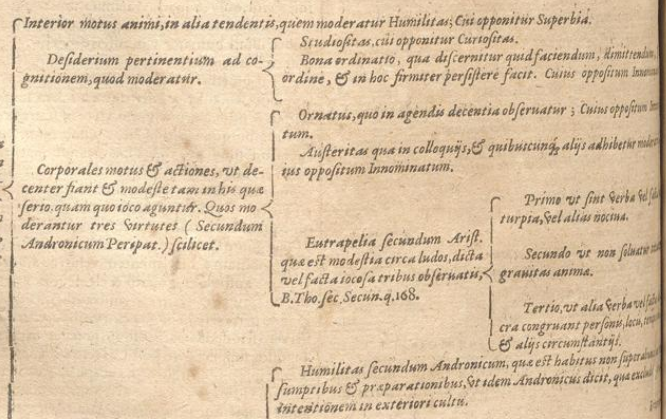 Interior motus animi, in alia tendentis, quem moderatur Humilitas; Cui opponitur Superbia.
Desiderium pertinentium ad co-
gnitionem, quod moderatur.
Studiositas, cui opponitur Curiositas.
Bona ordinatio, qua discernitur quid faciendum, dimittendum,
ordine, & in hoc firmiter persistere facit. Cuius oppositum Innomin
Corporales motus & actiones, vt de-
center fiant & modeste tam in his quæ
serio, quam quo ioco aguntur. Quos mo
derantur tres virtutes ( Secundum
Andronicum Peripat.) scilicet.
Ornatus, quo in agendis decentia obseruatur ; Cuius oppositum Inno
tum.
Austeritas qua in colloquijs, & quibuscunq; alijs adhibetur moder
ius oppositum Innominatum.
Eutrapelia secundum Arist.
quæ est modestia circa ludos, dicta
vel facta iocosa tribus obseruatis,
B. Tho. sec. Secun. q. 168.
Primo vt sint verba vel
turpia, vel alias nociua.
Secundo vt non soluatur
grauitas animæ.
Tertio, vt alia verba vel
cra congruant personis, locu,
& alijs circumstantijs.
Humilitas secundum Andronicum, quæ est habitus non
sumptibus & præparationibus, vt idem Andronicus dicit, quæ
intentionem in exteriori cultu.